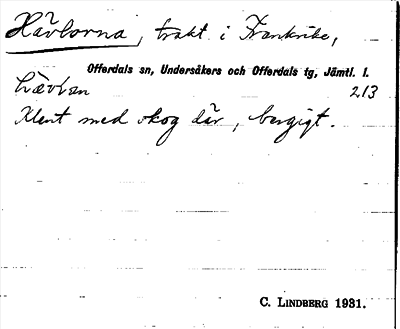 Hävlorna, trakt i Frankrike,
Offerdals sn, Undersåkers och Offerdals tg, Jämtl. l.
213
med skog där, bergigt.
C. LINDBERG 1931.